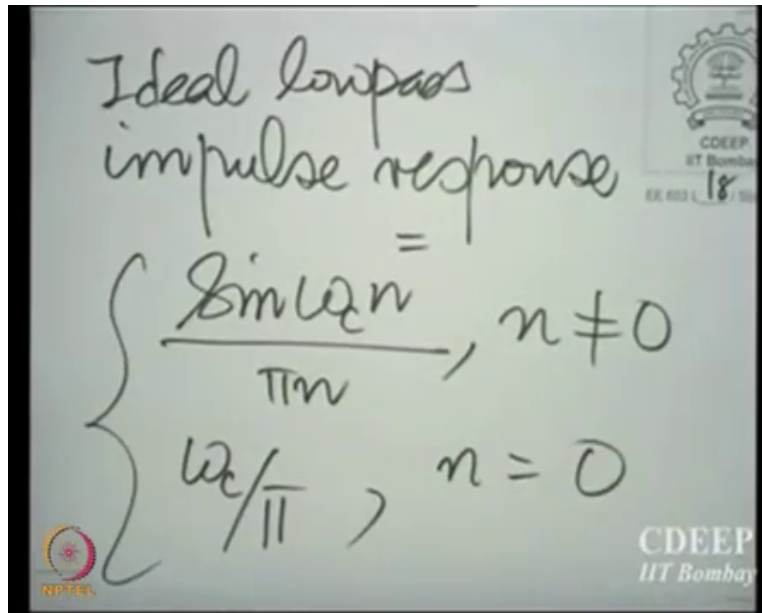 Ideal lowpass
impulse response
=
sin ω_c n / πn , n ≠ 0
ω_c/π , n = 0
CDEEP
IIT Bombay
EE 603 L 18 / Sl
NPTEL
CDEEP
IIT Bombay